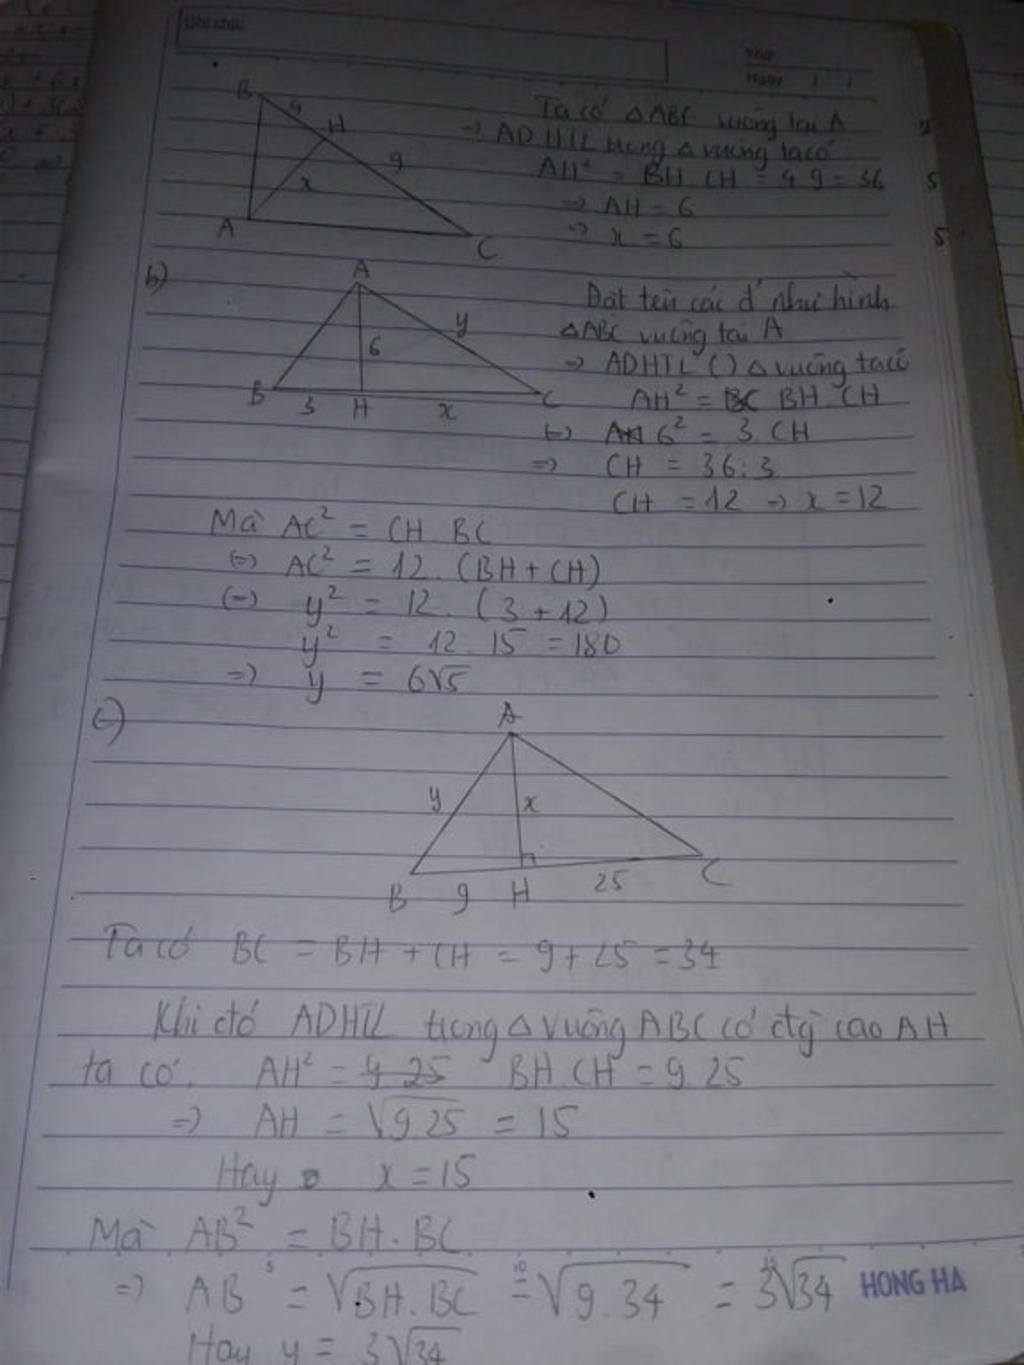 Ghi chú:
Thứ
Ngày / /
B 4 H
9
x
A C
Ta có △ABC vuông tại A
=> ADHTL trong △ vuông ta có
AH² = BH.CH = 4.9 = 36
=> AH = 6
=> x = 6
b)
A
y
6
B 3 H x C
Đặt tên các đ' như hình
△ABC vuông tại A
=> ADHTL () △ vuông ta có
AH² = BC BH.CH
(=) AH 6² = 3.CH
=> CH = 36:3
CH = 12 => x = 12
Mà AC² = CH.BC
(=) AC² = 12.(BH+CH)
(=) y² = 12.(3+12)
y² = 12.15 = 180
=> y = 6√5
c)
A
y x
B 9 H 25 C
Ta có BC = BH + CH = 9+25 = 34
Khi đó ADHTL trong △ vuông ABC có đg cao AH
ta có. AH² = 9.25 BH.CH = 9.25
=> AH = √9.25 = 15
Hay x = 15
Mà AB² = BH.BC
=> AB = √BH.BC = √9.34 = 3√34
HONG HA
Hay y = 3√34